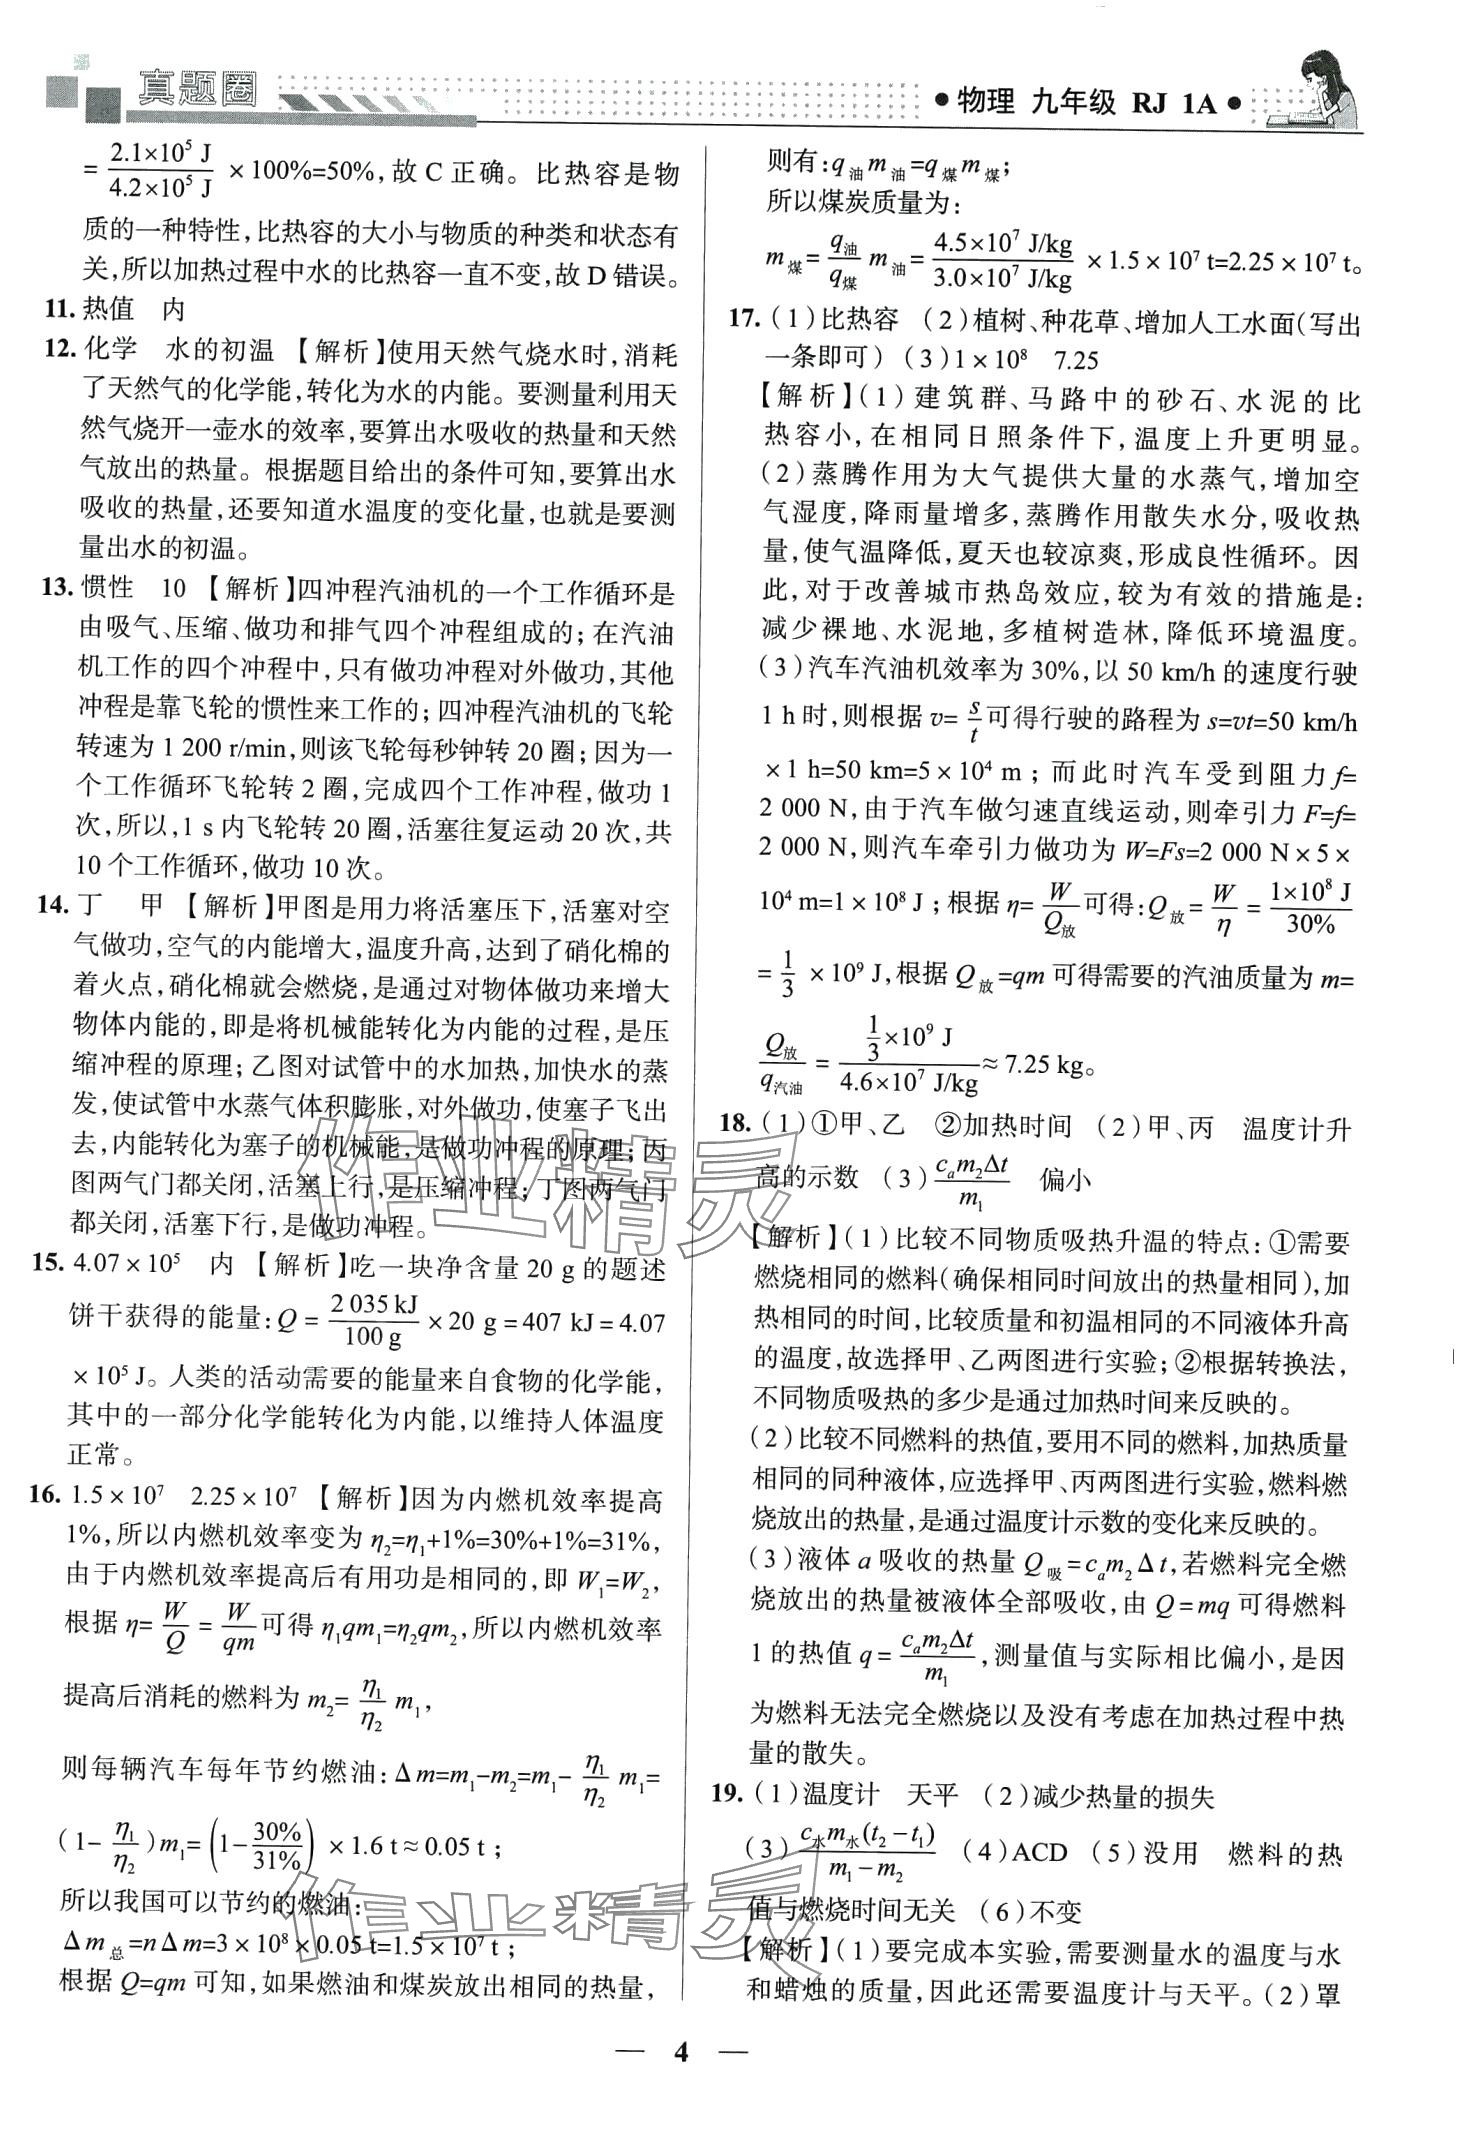 真题圈
● 物理 九年级 RJ 1A ●
= 2.1×10⁵ J / 4.2×10⁵ J ×100%=50%,故 C 正确。比热容是物
质的一种特性,比热容的大小与物质的种类和状态有
关,所以加热过程中水的比热容一直不变,故 D 错误。
11. 热值 内
12. 化学 水的初温 【解析】使用天然气烧水时,消耗
了天然气的化学能,转化为水的内能。要测量利用天
然气烧开一壶水的效率,要算出水吸收的热量和天然
气放出的热量。根据题目给出的条件可知,要算出水
吸收的热量,还要知道水温度的变化量,也就是要测
量出水的初温。
13. 惯性 10 【解析】四冲程汽油机的一个工作循环是
由吸气、压缩、做功和排气四个冲程组成的;在汽油
机工作的四个冲程中,只有做功冲程对外做功,其他
冲程是靠飞轮的惯性来工作的;四冲程汽油机的飞轮
转速为 1 200 r/min,则该飞轮每秒钟转 20 圈;因为一
个工作循环飞轮转 2 圈,完成四个工作冲程,做功 1
次,所以,1 s 内飞轮转 20 圈,活塞往复运动 20 次,共
10 个工作循环,做功 10 次。
14. 丁 甲 【解析】甲图是用力将活塞压下,活塞对空
气做功,空气的内能增大,温度升高,达到了硝化棉的
着火点,硝化棉就会燃烧,是通过对物体做功来增大
物体内能的,即是将机械能转化为内能的过程,是压
缩冲程的原理;乙图对试管中的水加热,加快水的蒸
发,使试管中水蒸气体积膨胀,对外做功,使塞子飞出
去,内能转化为塞子的机械能,是做功冲程的原理;丙
图两气门都关闭,活塞上行,是压缩冲程;丁图两气门
都关闭,活塞下行,是做功冲程。
15. 4.07×10⁵ 内 【解析】吃一块净含量 20 g 的题述
饼干获得的能量:Q = 2 035 kJ / 100 g ×20 g=407 kJ=4.07
×10⁵ J。人类的活动需要的能量来自食物的化学能,
其中的一部分化学能转化为内能,以维持人体温度
正常。
16. 1.5×10⁷ 2.25×10⁷ 【解析】因为内燃机效率提高
1%,所以内燃机效率变为 η₂=η₁+1%=30%+1%=31%,
由于内燃机效率提高后有用功是相同的,即 W₁=W₂,
根据 η= W/Q = W/qm 可得 η₁qm₁=η₂qm₂,所以内燃机效率
提高后消耗的燃料为 m₂= η₁/η₂ m₁,
则每辆汽车每年节约燃油:Δm=m₁-m₂=m₁- η₁/η₂ m₁=
(1- η₁/η₂)m₁=(1- 30%/31%)×1.6 t≈0.05 t;
所以我国可以节约的燃油:
Δm总=nΔm=3×10⁸×0.05 t=1.5×10⁷ t;
根据 Q=qm 可知,如果燃油和煤炭放出相同的热量,
则有:q油m油=q煤m煤;
所以煤炭质量为:
m煤= q油/q煤 m油= 4.5×10⁷ J/kg / 3.0×10⁷ J/kg ×1.5×10⁷ t=2.25×10⁷ t。
17. (1)比热容 (2)植树、种花草、增加人工水面(写出
一条即可) (3)1×10⁸ 7.25
【解析】(1)建筑群、马路中的砂石、水泥的比
热容小,在相同日照条件下,温度上升更明显。
(2)蒸腾作用为大气提供大量的水蒸气,增加空
气湿度,降雨量增多,蒸腾作用散失水分,吸收热
量,使气温降低,夏天也较凉爽,形成良性循环。因
此,对于改善城市热岛效应,较为有效的措施是:
减少裸地、水泥地,多植树造林,降低环境温度。
(3)汽车汽油机效率为 30%,以 50 km/h 的速度行驶
1 h 时,则根据 v= s/t 可得行驶的路程为 s=vt=50 km/h
×1 h=50 km=5×10⁴ m;而此时汽车受到阻力 f=
2 000 N,由于汽车做匀速直线运动,则牵引力 F=f=
2 000 N,则汽车牵引力做功为 W=Fs=2 000 N×5×
10⁴ m=1×10⁸ J;根据 η= W/Q放 可得:Q放= W/η = 1×10⁸ J / 30%
= 1/3 ×10⁹ J,根据 Q放=qm 可得需要的汽油质量为 m=
Q放/q汽油 = 1/3×10⁹ J / 4.6×10⁷ J/kg ≈7.25 kg。
18. (1)①甲、乙 ②加热时间 (2)甲、丙 温度计升
高的示数 (3) cₐm₂Δt/m₁ 偏小
【解析】(1)比较不同物质吸热升温的特点:①需要
燃烧相同的燃料(确保相同时间放出的热量相同),加
热相同的时间,比较质量和初温相同的不同液体升高
的温度,故选择甲、乙两图进行实验;②根据转换法,
不同物质吸热的多少是通过加热时间来反映的。
(2)比较不同燃料的热值,要用不同的燃料,加热质量
相同的同种液体,应选择甲、丙两图进行实验,燃料燃
烧放出的热量,是通过温度计示数的变化来反映的。
(3)液体 a 吸收的热量 Q吸=cₐm₂Δt,若燃料完全燃
烧放出的热量被液体全部吸收,由 Q=mq 可得燃料
1 的热值 q= cₐm₂Δt/m₁,测量值与实际相比偏小,是因
为燃料无法完全燃烧以及没有考虑在加热过程中热
量的散失。
19. (1)温度计 天平 (2)减少热量的损失
(3) c水m水(t₂-t₁)/(m₁-m₂) (4)ACD (5)没用 燃料的热
值与燃烧时间无关 (6)不变
【解析】(1)要完成本实验,需要测量水的温度与水
和蜡烛的质量,因此还需要温度计与天平。(2)罩
作业精灵
作业精灵
— 4 —